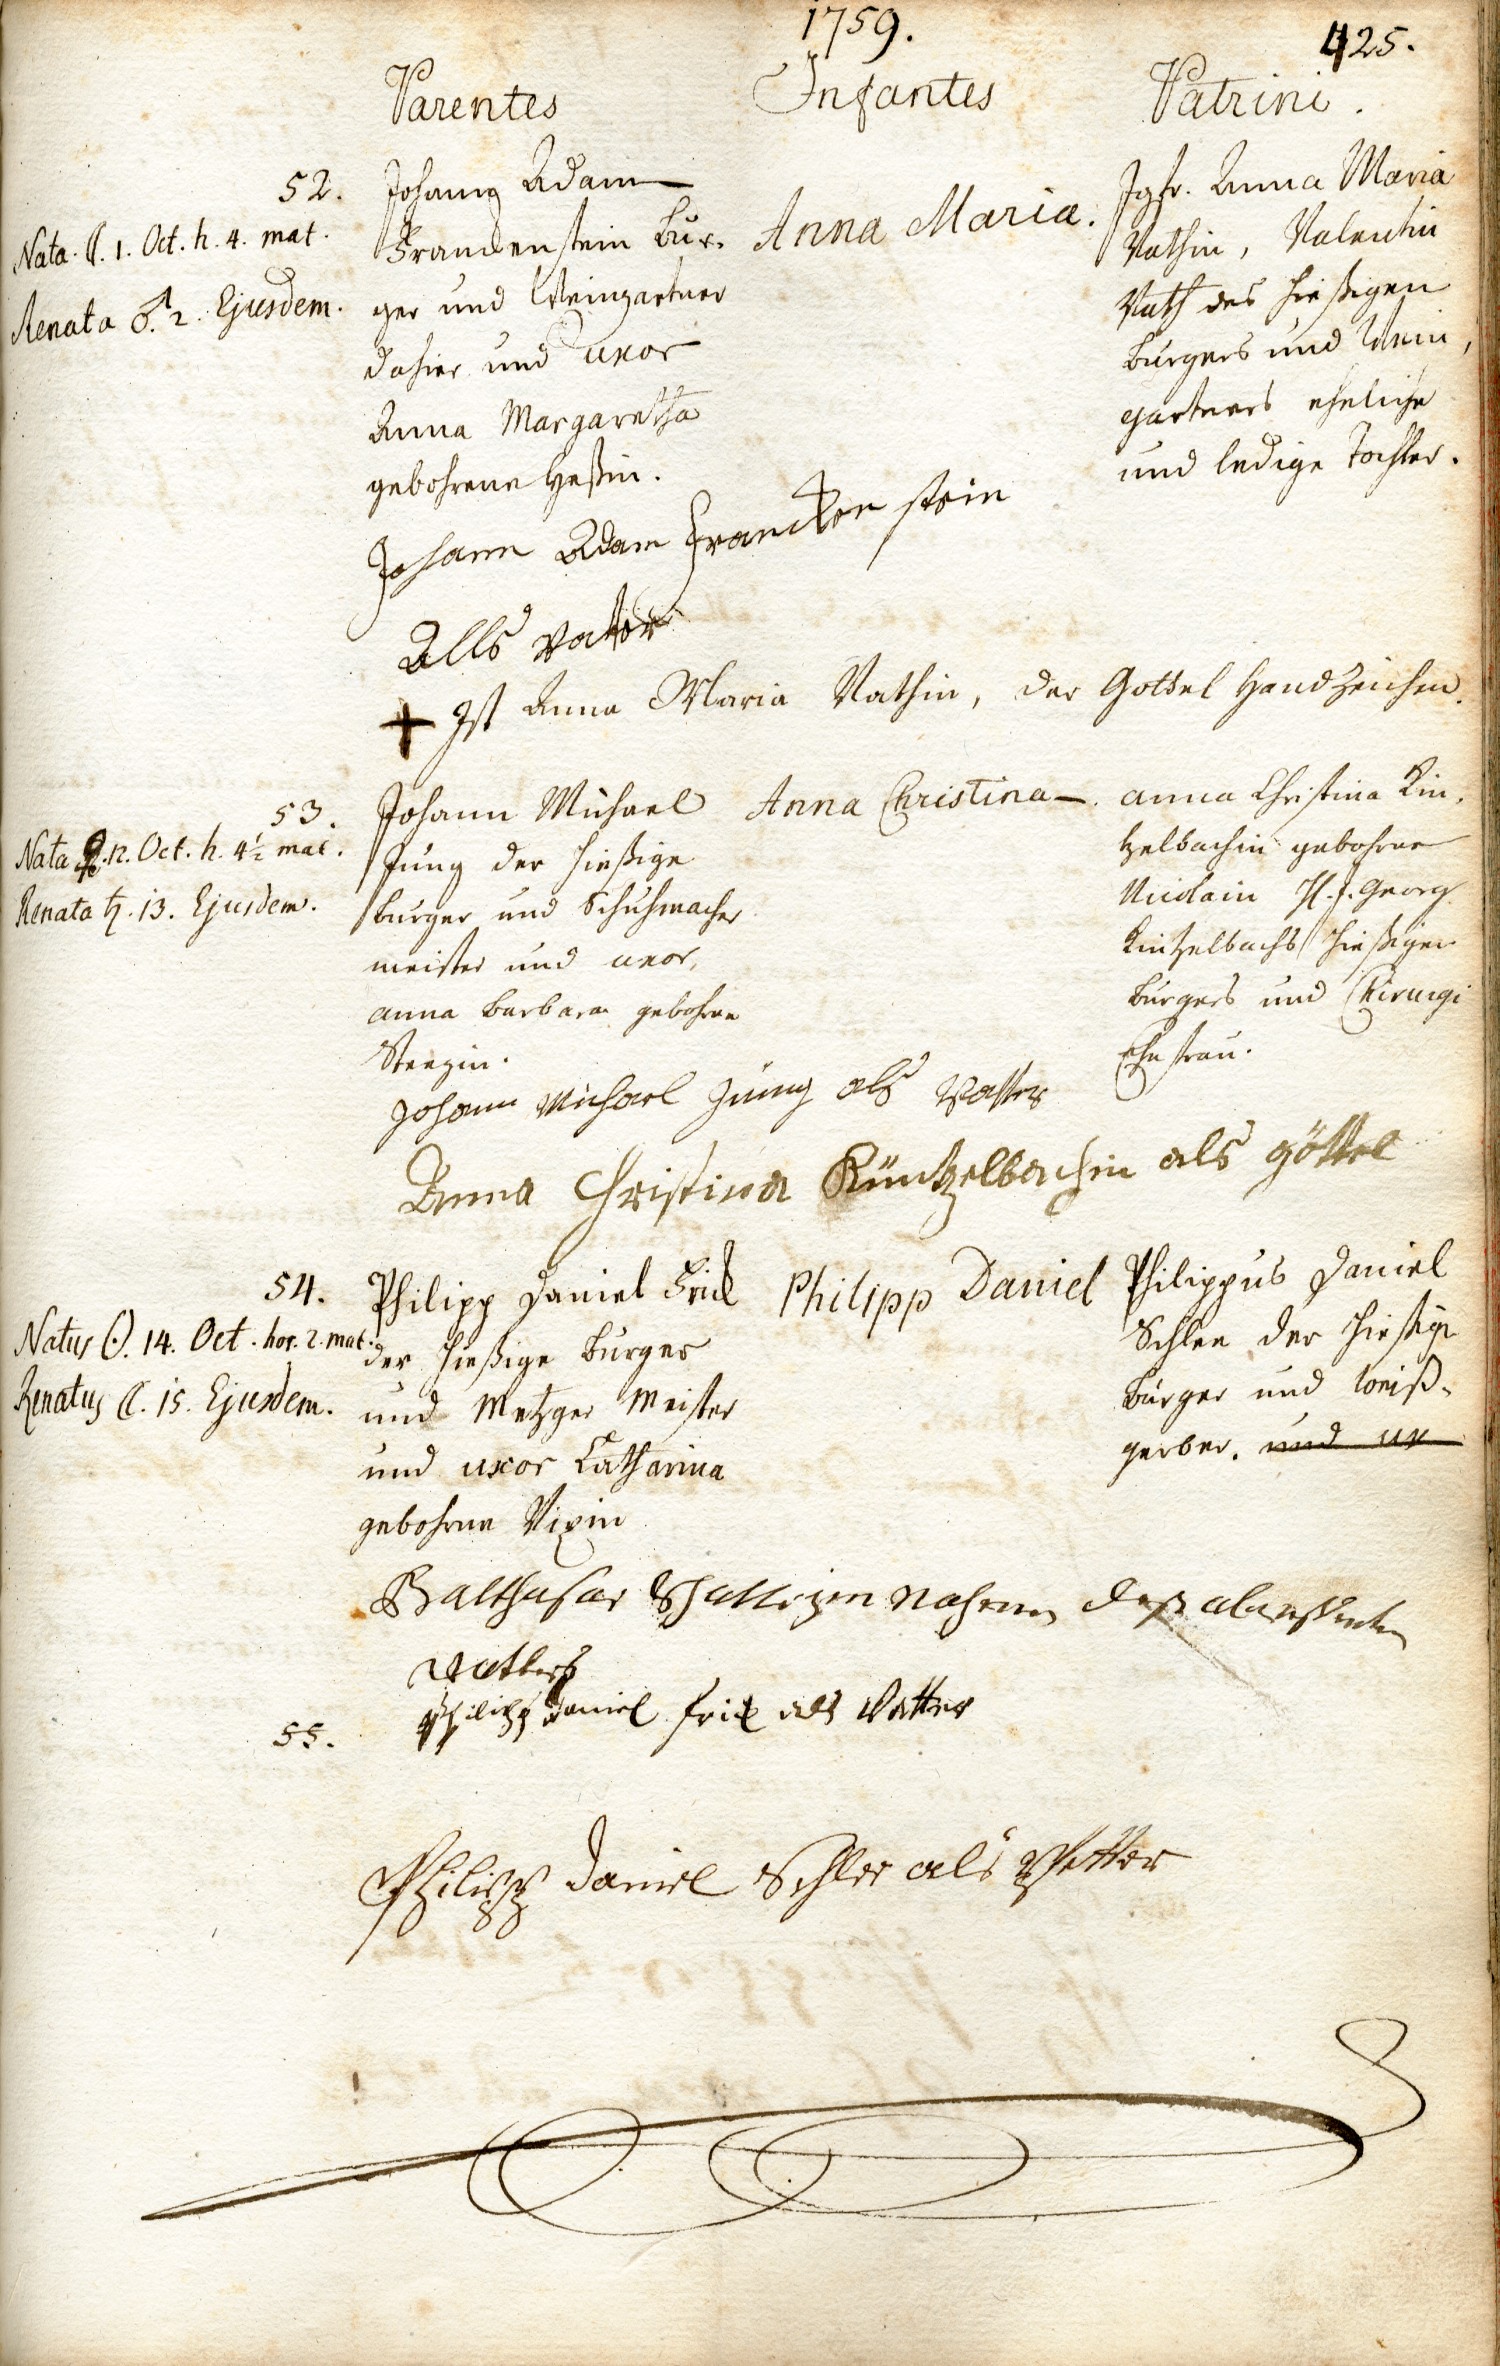 1759.
425.
Parentes
Infantes
Patrini.
52.
Nata ☾. 1. Oct. h. 4. mat.
Renata ♂. 2. Ejusdem.
Johann Adam
Franckenstein Bur-
ger und Weingartner
dahier und uxor
Anna Margaretha
gebohrene Heßin.
Anna Maria.
Jgfr. Anna Maria
Vathin, Valentin
Vath des hießigen
Burgers und Wein,
gartners eheliche
und ledige Tochter.
Johann Adam Francken stein
Alls Vatter
+ Ist Anna Maria Vathin, der Gottel Handzeichen.
53.
Nata ♀. 12. Oct. h. 4½ mat.
Renata ♄. 13. Ejusdem.
Johann Michael
Jung der hießige
Burger und Schuhmacher
meister und uxor,
anna Barbara gebohrne
Anna Christina.
anna Christina Kin,
tzelbachin gebohrne
H. J. Georg
Kintzelbachs hießigen
Burgers und Chirurgi
Ehefrau.
Johann Michael Jung als Vatter
Anna Christina Küntzelbachin als göttel
54.
Natus ☉. 14. Oct. hor. 2. mat.
Renatus ☾. 15. Ejusdem.
Philipp Daniel Frick
der hießige Burger
und Metzger Meister
und uxor Catharina
gebohrne
Philipp Daniel
Philippus Daniel
Schlee der hießige
Burger und Weiß-
gerber. und ux
Balthasar nahmen deß
Vatters
Philipp Daniel Frick als Vatter
55.
Philipp Daniel Schlee als Petter